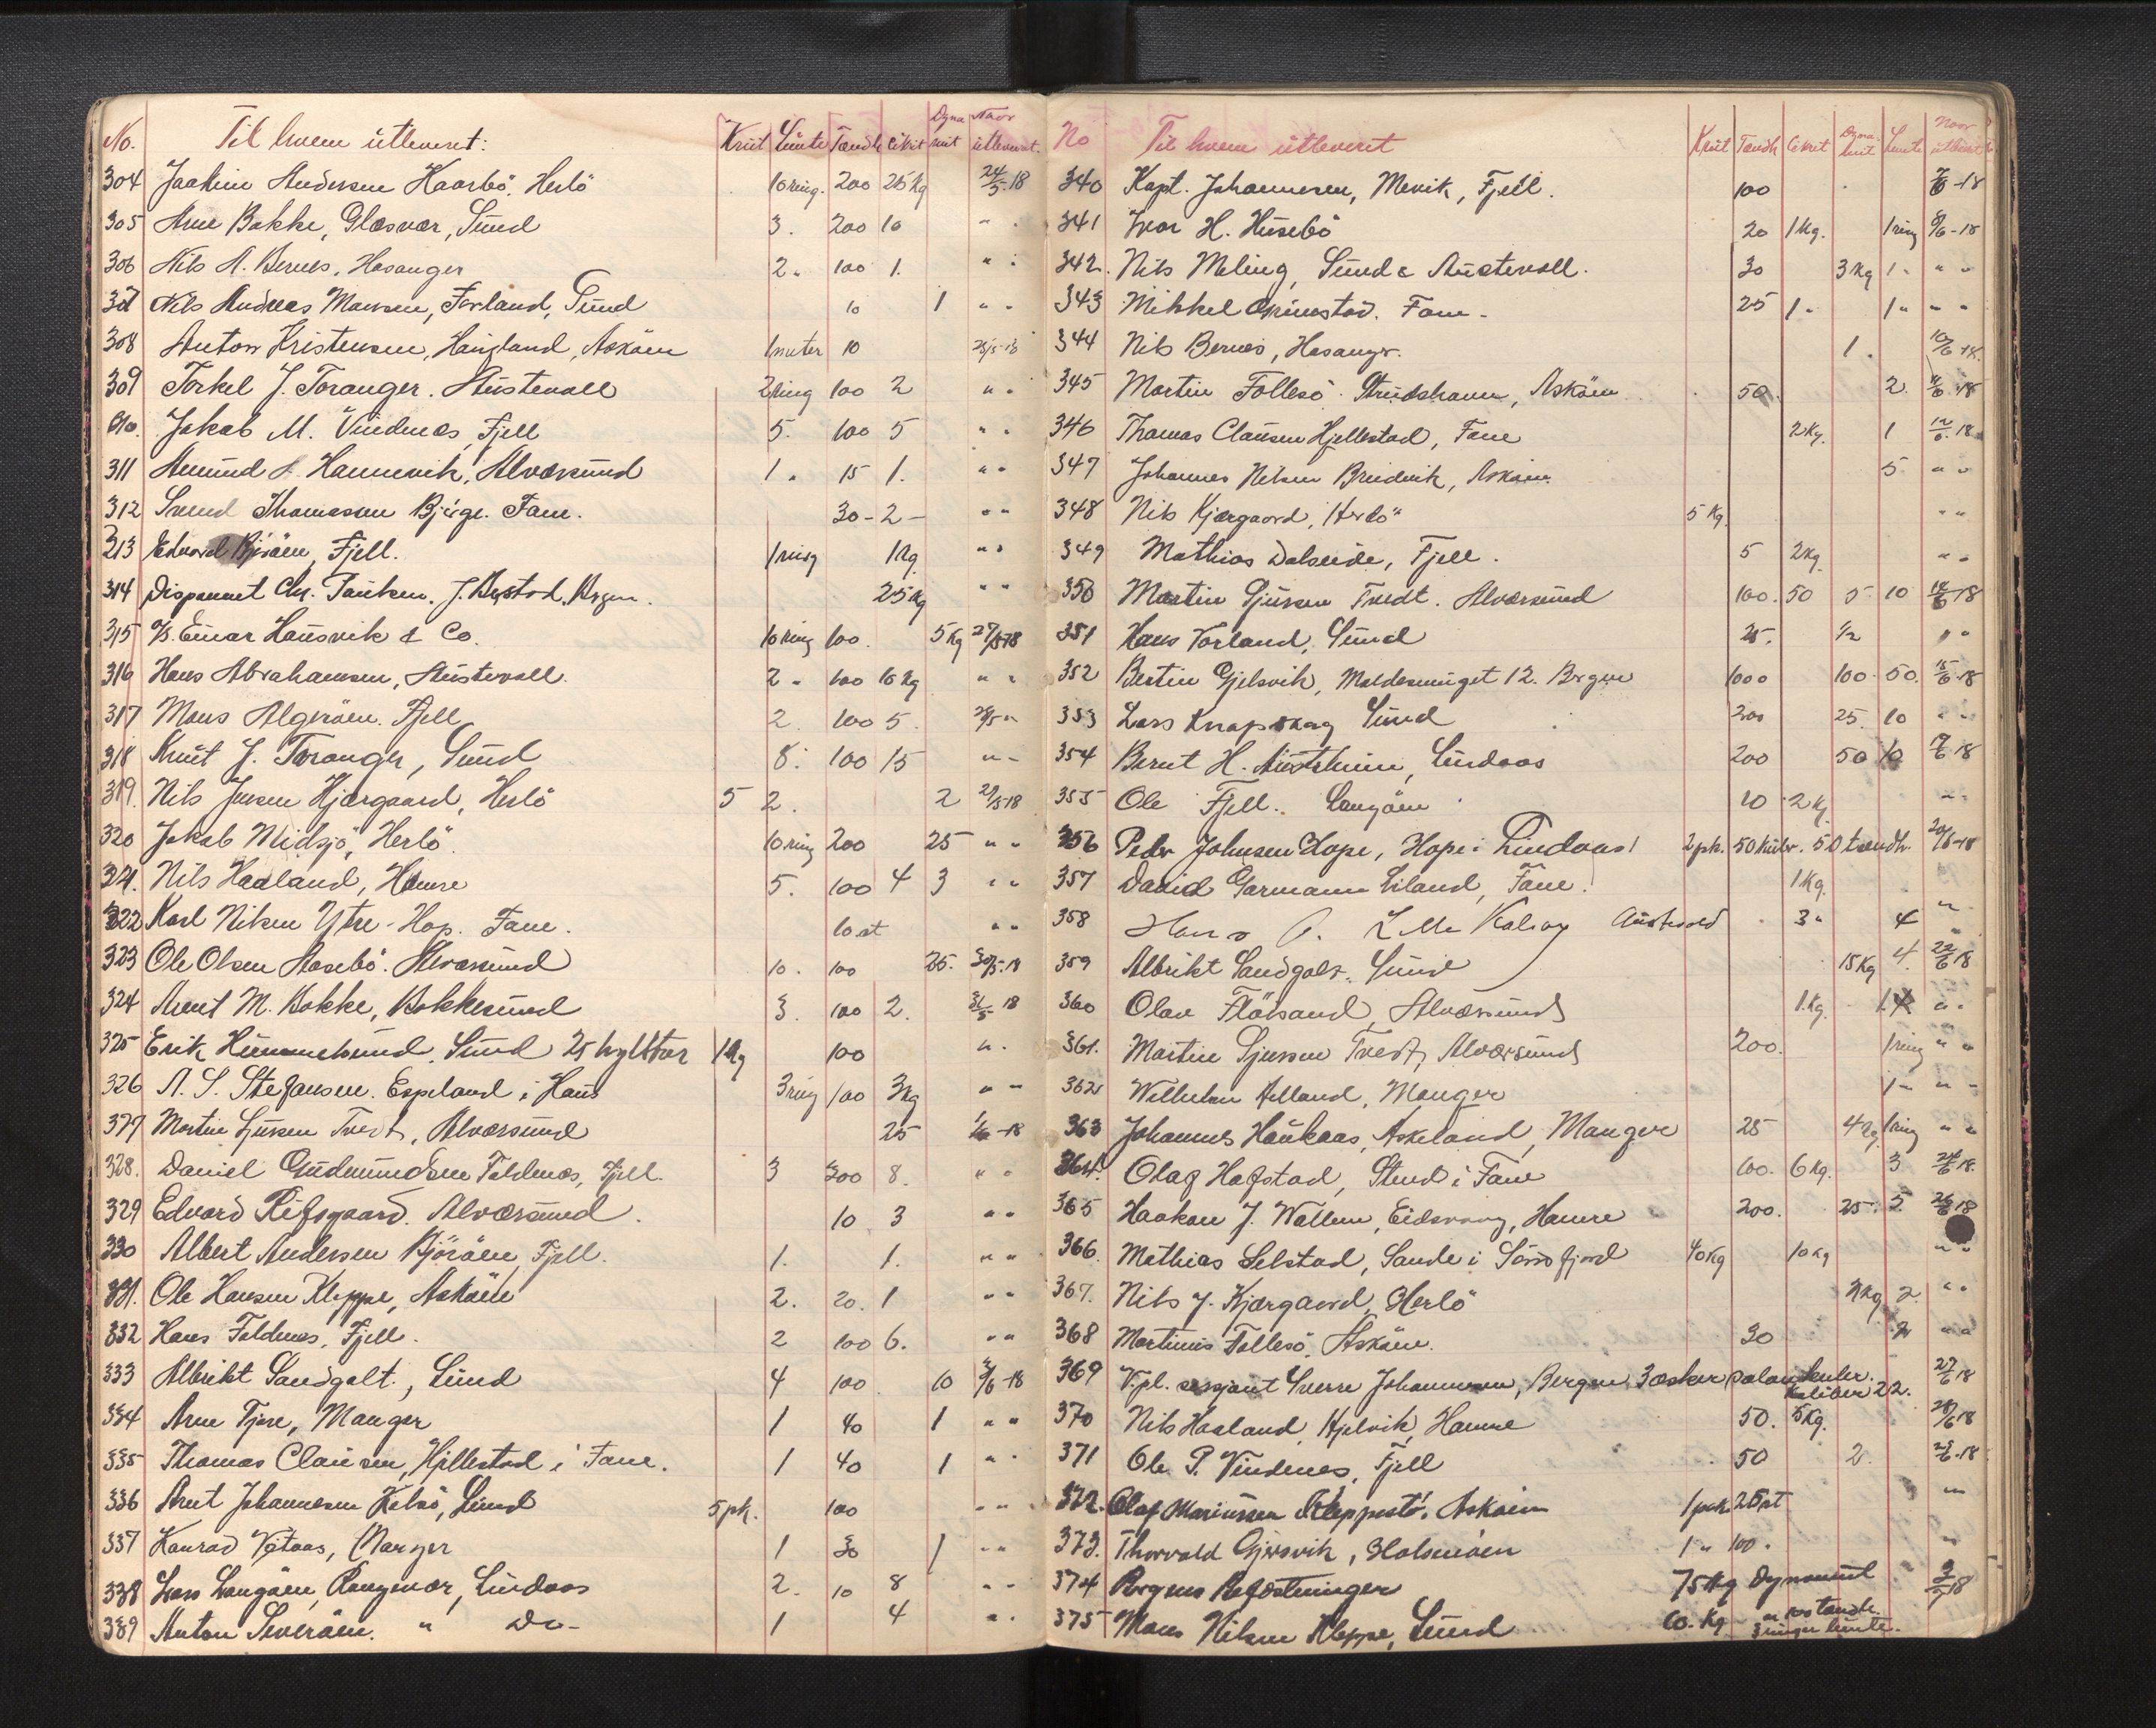 No. Til hvem utleveret: Krut Lunte Tændh Cikrit Dynamit Naar utleveret.
304 Joakim Andersen Haarbö, Herlö 10 ring. 200 25 kg 24/5-18
305 Arne Bakke, Glæsvær, Sund 3. 200 10 " .
306 Nils A. Bernes, Hosanger 2. 100 1. " "
307 Nils Andreas Monsen, Forland, Sund 10 1 " "
308 Anton Kristensen, Haugland, Asköen 1 meter 10 25/5-18
309 Torkel J. Toranger. Austevoll 2 ring 100 2 " "
310. Jakob M. Vindenes, Fjell 5. 100 5 " "
311 Amund A. Hannevik, Alværsund 1. 15 1. " "
312 Svend Thomassen Bjørge. Fane. 30 - 2 - " "
313 Edvard Björöen, Fjell. 1 ring 1 kg " "
314 Disponent Chr. Paulsen. J. Bystød, Bergen. 25 kg " "
315 A/S. Einar Hausvik & Co. 10 ring 100. 5 kg 27/5-18
316 Hans Abrahamsen, Austevoll. 2 - 100 10 kg " "
317 Mons Algeröen. Fjell 2. 100 5. 28/5 "
318 Knut J. Toranger, Sund 8. 100 15 " -
319. Nils Jensen Kjærgaard, Herlö 5 2. 2 29/5-18
320 Jakob Midsjö, Herlö. 10 ring 200 25 " "
321. Nils Haaland, Hamre 5. 100 4 3 " "
322 Karl Nilsen Ytre-Hop. Fane. 10 st " "
323 Ole Olsen Aasebö. Alværsund 10. 100 25. 30/5-18
324 Arent M. Bakke, Bakkesund 3. 100 2. 31/5 18
325 Erik Hummelsund, Sund 25 hylstar 1 kg 100 " .
326 A. S. Stefansen. Espeland i Haus 3 ring 100 3 kg " "
327 Martin Sjursen Tvedt, Alværsund 25 1/6-18
328. Daniel Gudmundsen Foldnes, Fjell. 3 300 8. " "
329 Edvard Rifsgaard. Alværsund. 10 3 " "
330 Albert Andersen Björöen, Fjell. 1. 1. " "
331. Ole Hansen Kleppe, Asköen 2. 20. 1 " "
332 Hans Foldnes, Fjell. 2 100 6. " "
333 Albrikt Sandgolt., Sund 4 100. 10 3/6-18
334 Arne Tjore, Manger 1 40 1 " "
335 Thomas Clausen, Hjellestad i Fane. 1 40 1 " "
336 Arnt Johannesen Kobbö, Sund 5 pk. 100 " "
337 Konrad Vetaas, Manger 1 30 1 " "
338 Lars Langöen, Rongevær, Lindaas 2. 10 8 " "
339 Anton Severöen. " Do- 1 4 " .
No Til hvem utleveret Krut Tændh Cikret Dynamit Lunte Naar utleveret
340 Kapt. Johannesen, Mevik, Fjell. 100 7/6-18
341 Ivar H. Husebö 20 1 kg. 1 ring 8/6-18
342. Nils Meling, Sund & Austevoll. 30 3 kg 1 - " "
343 Mikkel Grimstad. Fane - 25 1 - 1 " " "
344 Nils Bernes, Hosanger. 1. 10/6 18.
345 Martin Follesö. Strudshavn, Asköen 50. 2. 11/6-18
346 Thomas Clausen Hjellestad, Fane 2 kg. 1 12/6.18
347 Johannes Nilsen Bruderik, Asköen. 5 " "
348 Nils Kjærgaard, Herlö 5 kg. " "
349 Mathias Dalseide, Fjell. 5 2 kg " "
350 Martin Sjursen Tvedt. Alværsund 100. 50 5 10 14/6-18
351 Hans Vorland, Sund 25. 1/2 " "
352 Bertin Gjelsvik, Moldesmuget 12. Bergen 1000 100 50. 15/6-18
353 Lars Knapskog Sund 200 25. 10 " "
354 Bernt H. Austrheim, Lindaas 200 50 10 17/6 18
355 Ole Fjell. Langöen 10 2 kg " "
356 Peder Johnsen Hope, Hope i Lindaas! 2 pk. 50 kuler. 50 tændh. 20/6-18
357 David Garmann Liland, Fane. 1 kg. "
358 Hans P. Lille Kalsøy Austevold 3 " 4 "
359 Albrikt Sandgolt. Sund 15 kg 4. 22/6 18
360 Olav Flötsand, Alværsund 1 kg. 1 " "
361. Martin Sjursen Tvedt, Alværsund 200. 1 ring " "
362 Wilhelm Helland, Manger 1 - " -
363 Johannes Haukaas, Askeland, Manger 25 4 kg 1 ring " "
364. Olaf Hafstad, Stend i Fane 100. 6 kg. 3 24/6 18.
365 Haakon J. Wallem, Eidsvaag, Hamre 200. 25. 5 26/6 18
366. Mathias Selstad, Sande i Sörfjord 40 kg 10 kg " "
367. Nils J. Kjærgaard, Herlö 3 kg 2. " "
368 Martinus Follesö, Asköen. 30 2 " "
369 V.pl. sersjant Sverre Johannesen, Bergen 3 æsker salonkuler. kaliber 22. 27/6 18
370 Nils Haaland, Hjelvik, Hamre 50. 5 kg. 28/6 18
371 Ole P. Vindenes, Fjell 50 2. 29/6.18
372. Olaf Mariussen Kleppestö, Asköen 1 pak 25 pt "
373. Thorvald Gjersvik, Holsenöen 1 " 100. "
374 Bergens Befæstninger 75 kg Dynamit 3/7 18
375 Mons Nilsen Kleppe, Sund 10. kg " 100 tændh. 3 ringer lunte.